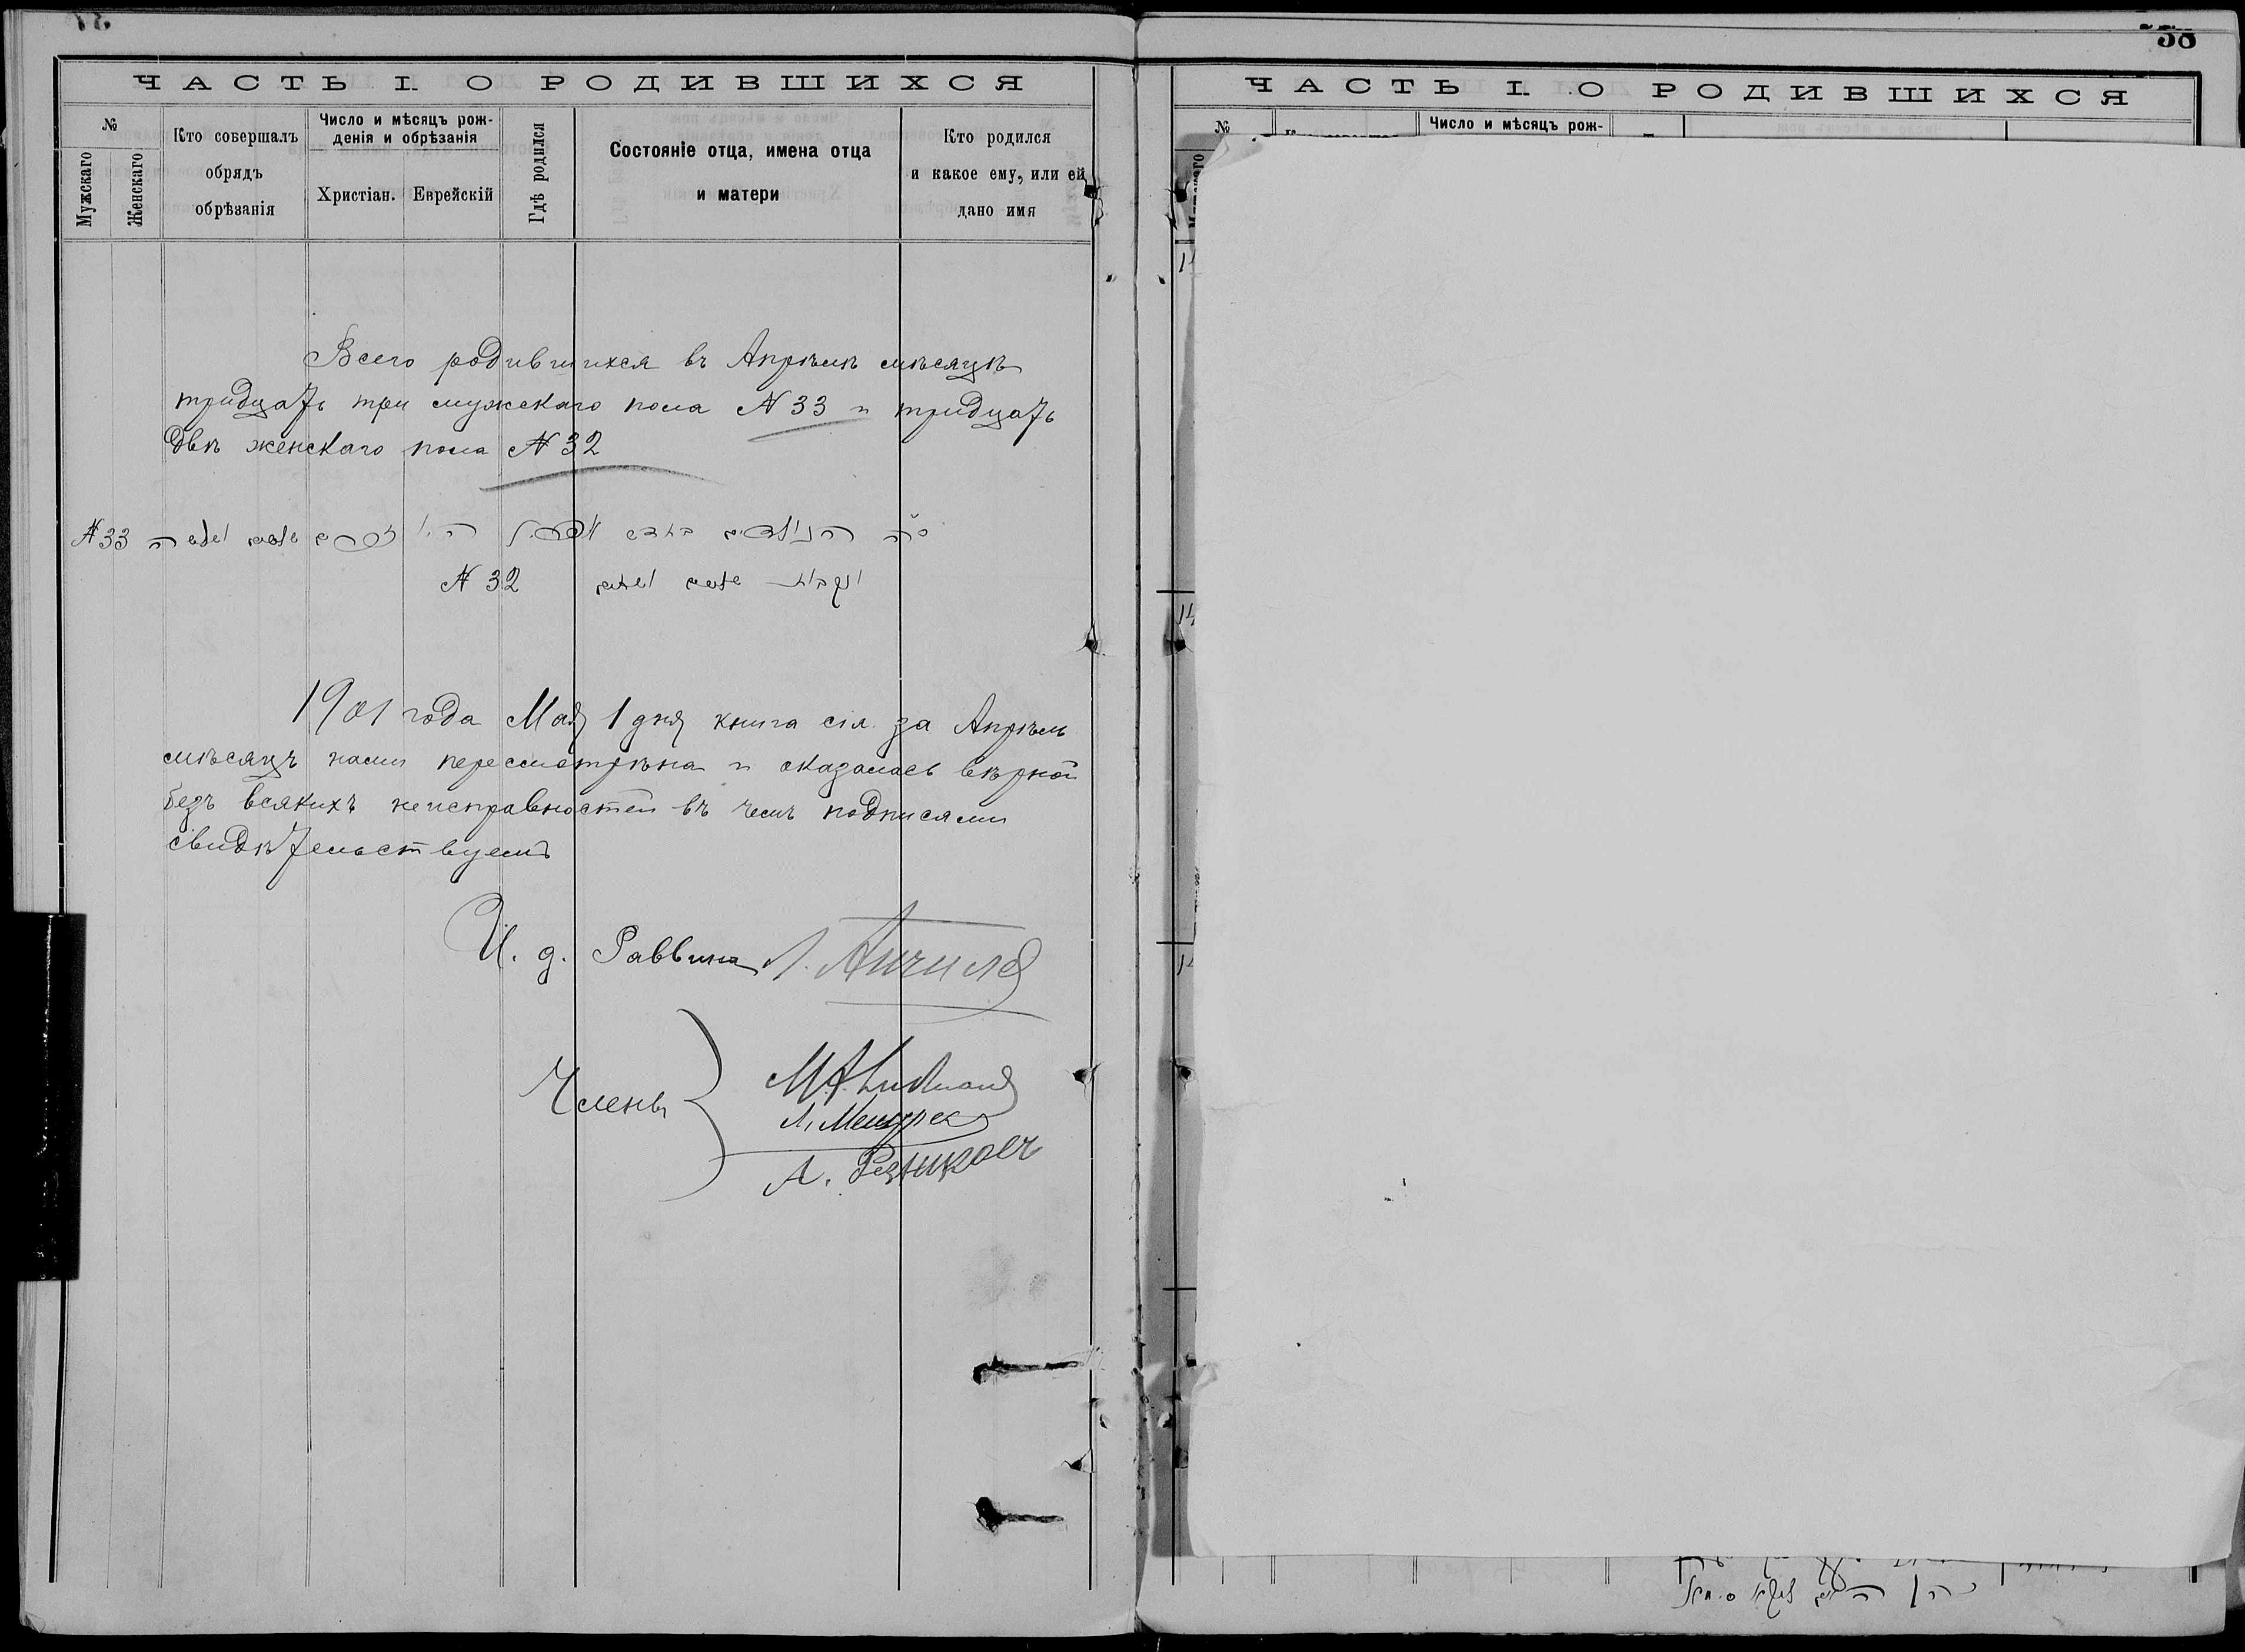 58
ЧАСТЬ I. О РОДИВШИХСЯ
№
Мужскаго
Женскаго
Кто собершалъ
обрядъ
обрѣзанія
Число и мѣсяцъ рож-
денія и обрѣзанія
Христіан.
Еврейскій
Гдѣ родился
Состояніе отца, имена отца
и матери
Кто родился
и какое ему, или ей
дано имя
Всего родившихся въ Апрѣлѣ мѣсяцѣ
тридцать три мужскаго пола № 33 и тридцать
двѣ женскаго пола № 32
שלשים ושלשה № 33
ונקבות שלשים ושתים № 32
1901 года Мая 1 дня книга сія за Апрѣль
мѣсяцъ нами пересмотрѣна и оказалась вѣрной
безъ всякихъ неисправностей въ чемъ подписями
свидѣтельствуемъ
И. д. Раввина
Члены
А. Резниковъ
ЧАСТЬ I. О РОДИВШИХСЯ
№
Число и мѣсяцъ рож-